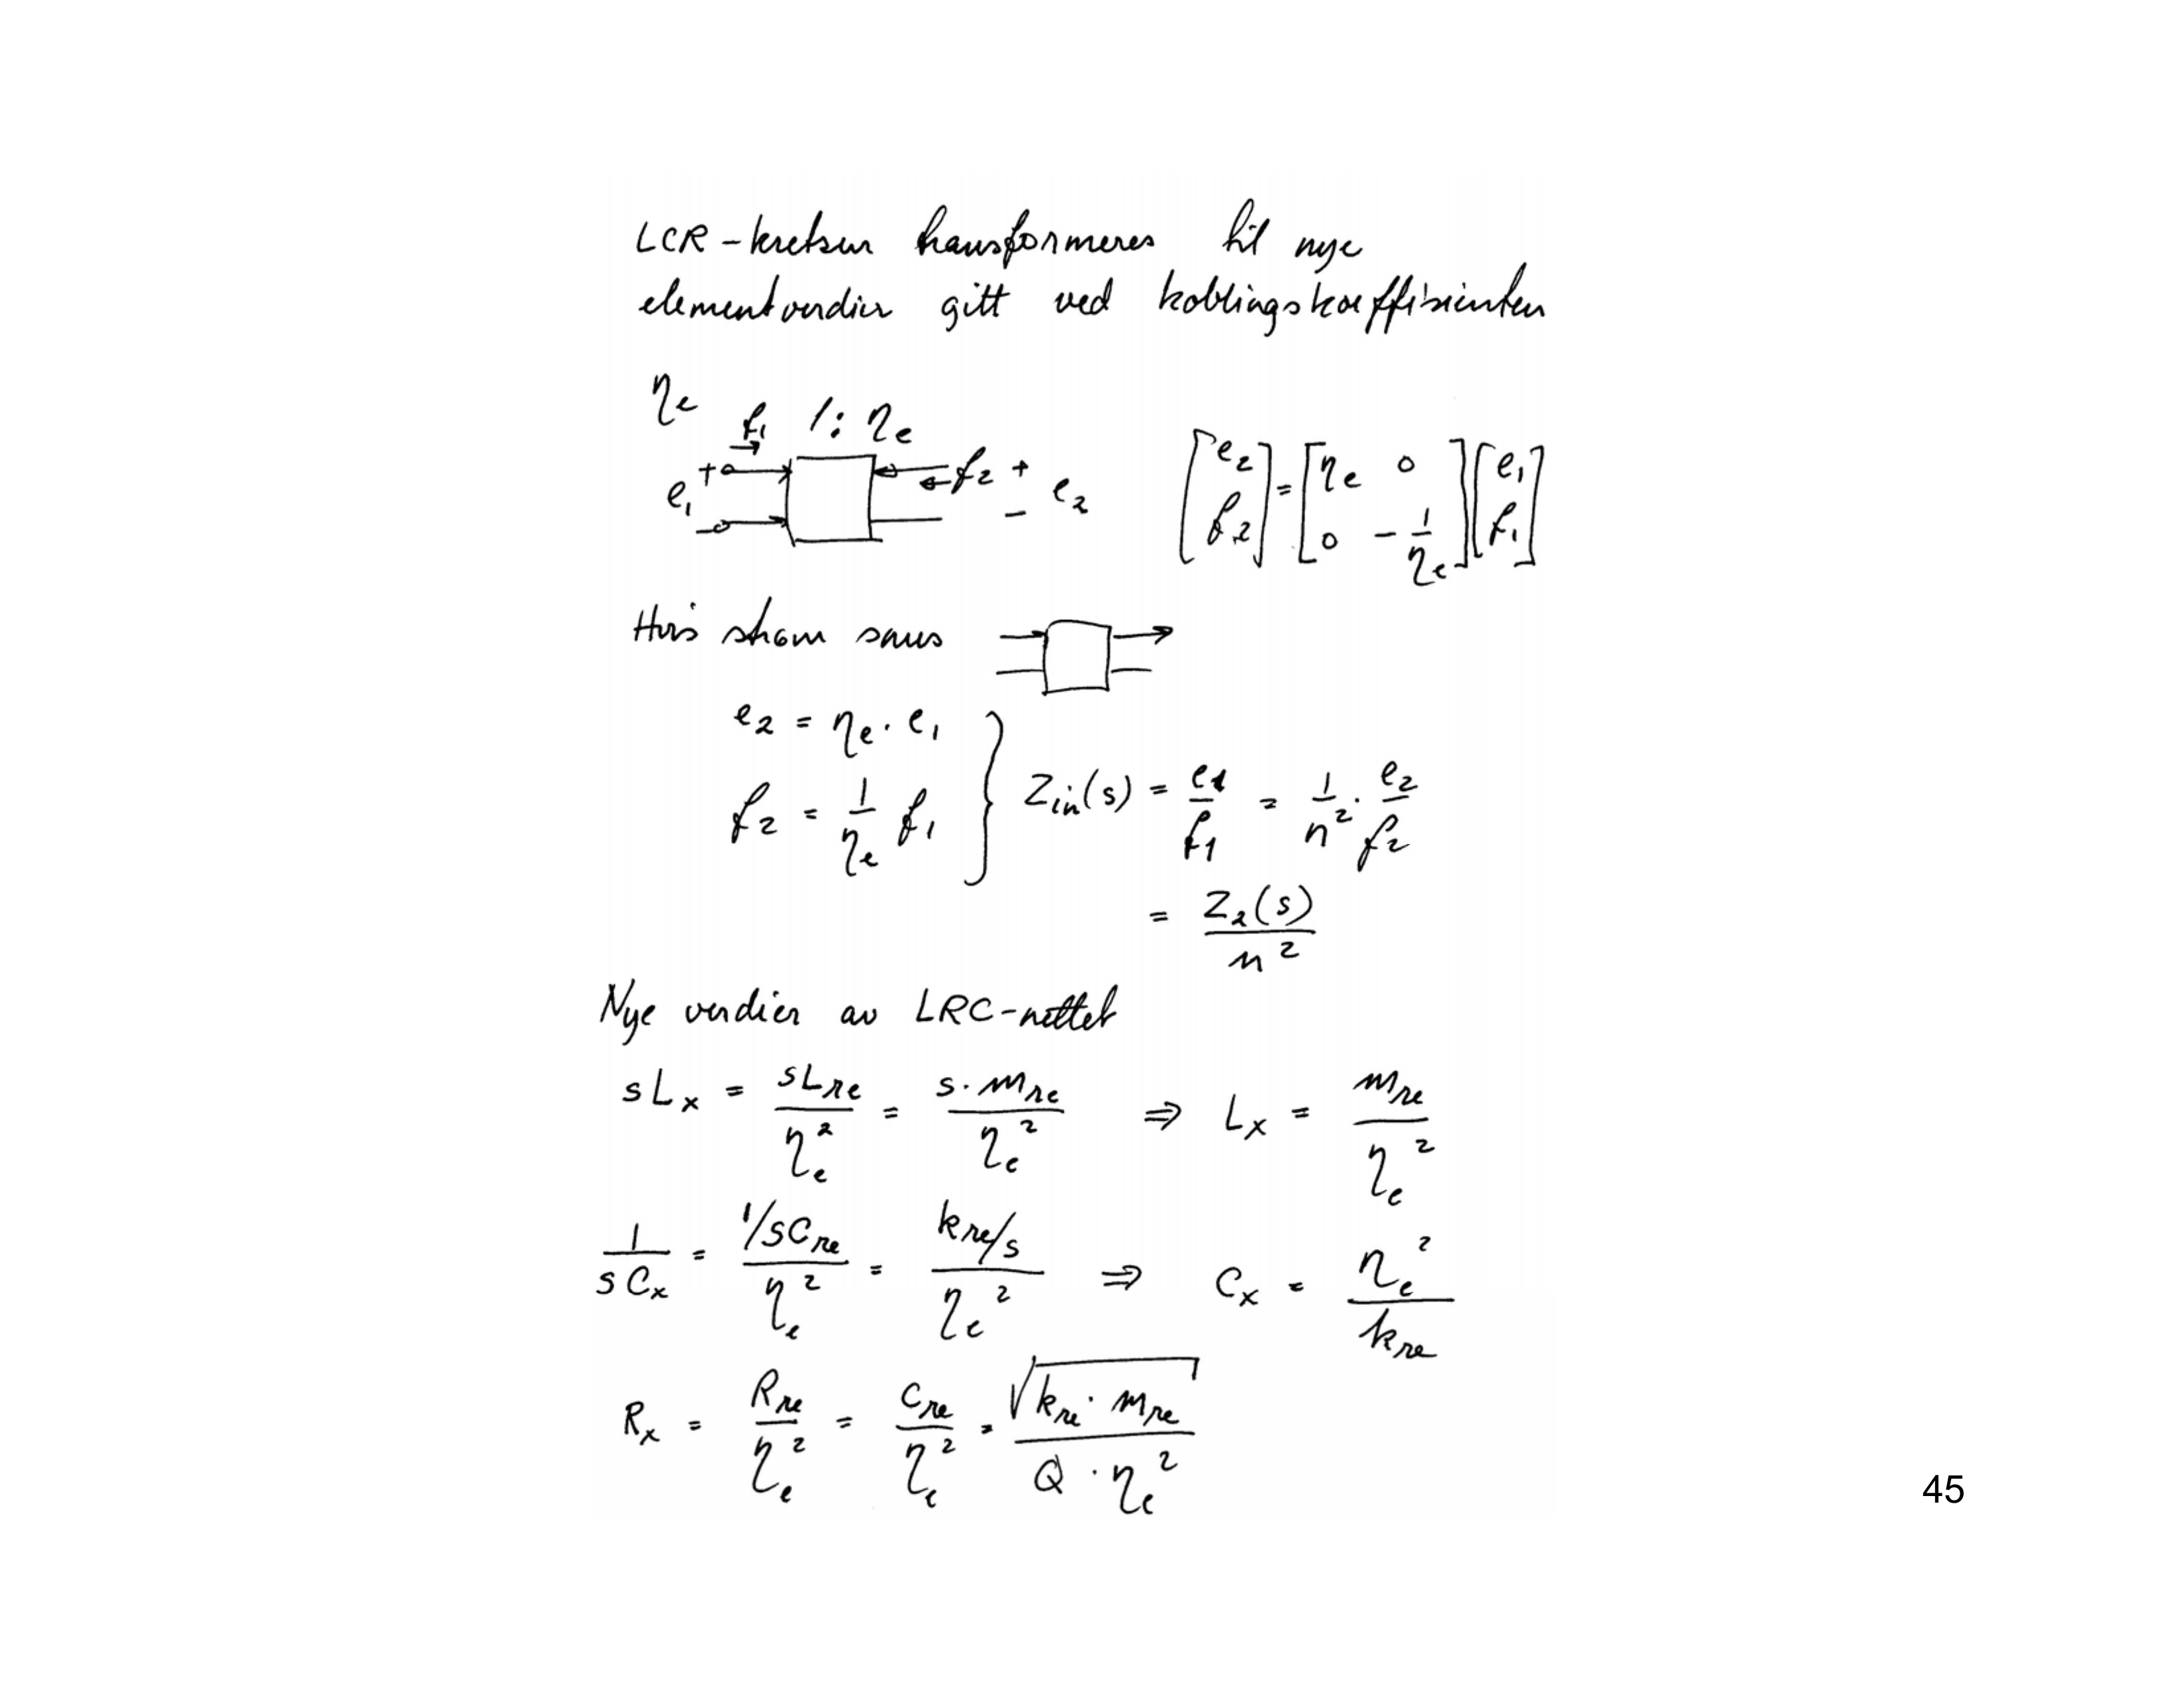 LCR-kretsen transformeres til nye
elementverdier gitt ved koblingskoeffisienten
ηe
f1 1:ηe
e1 + f2 + - e2
[e2 f2] = [ηe 0 0 -1/ηe] [e1 f1]
Hvis strøm snus
e2 = ηe · e1
f2 = 1/ηe f1 } Zin(s) = e1/f1 = 1/n² · e2/f2
= Z2(s)/n²
Nye verdier av LRC-nettet
sLx = sLre/ηe² = s·mre/ηe² ⇒ Lx = mre/ηe²
1/sCx = (1/sCre)/ηe² = (kre/s)/ηe² ⇒ Cx = ηe²/kre
Rx = Rre/ηe² = cre/ηe² = √(kre·mre)/(Q·ηe²)
45